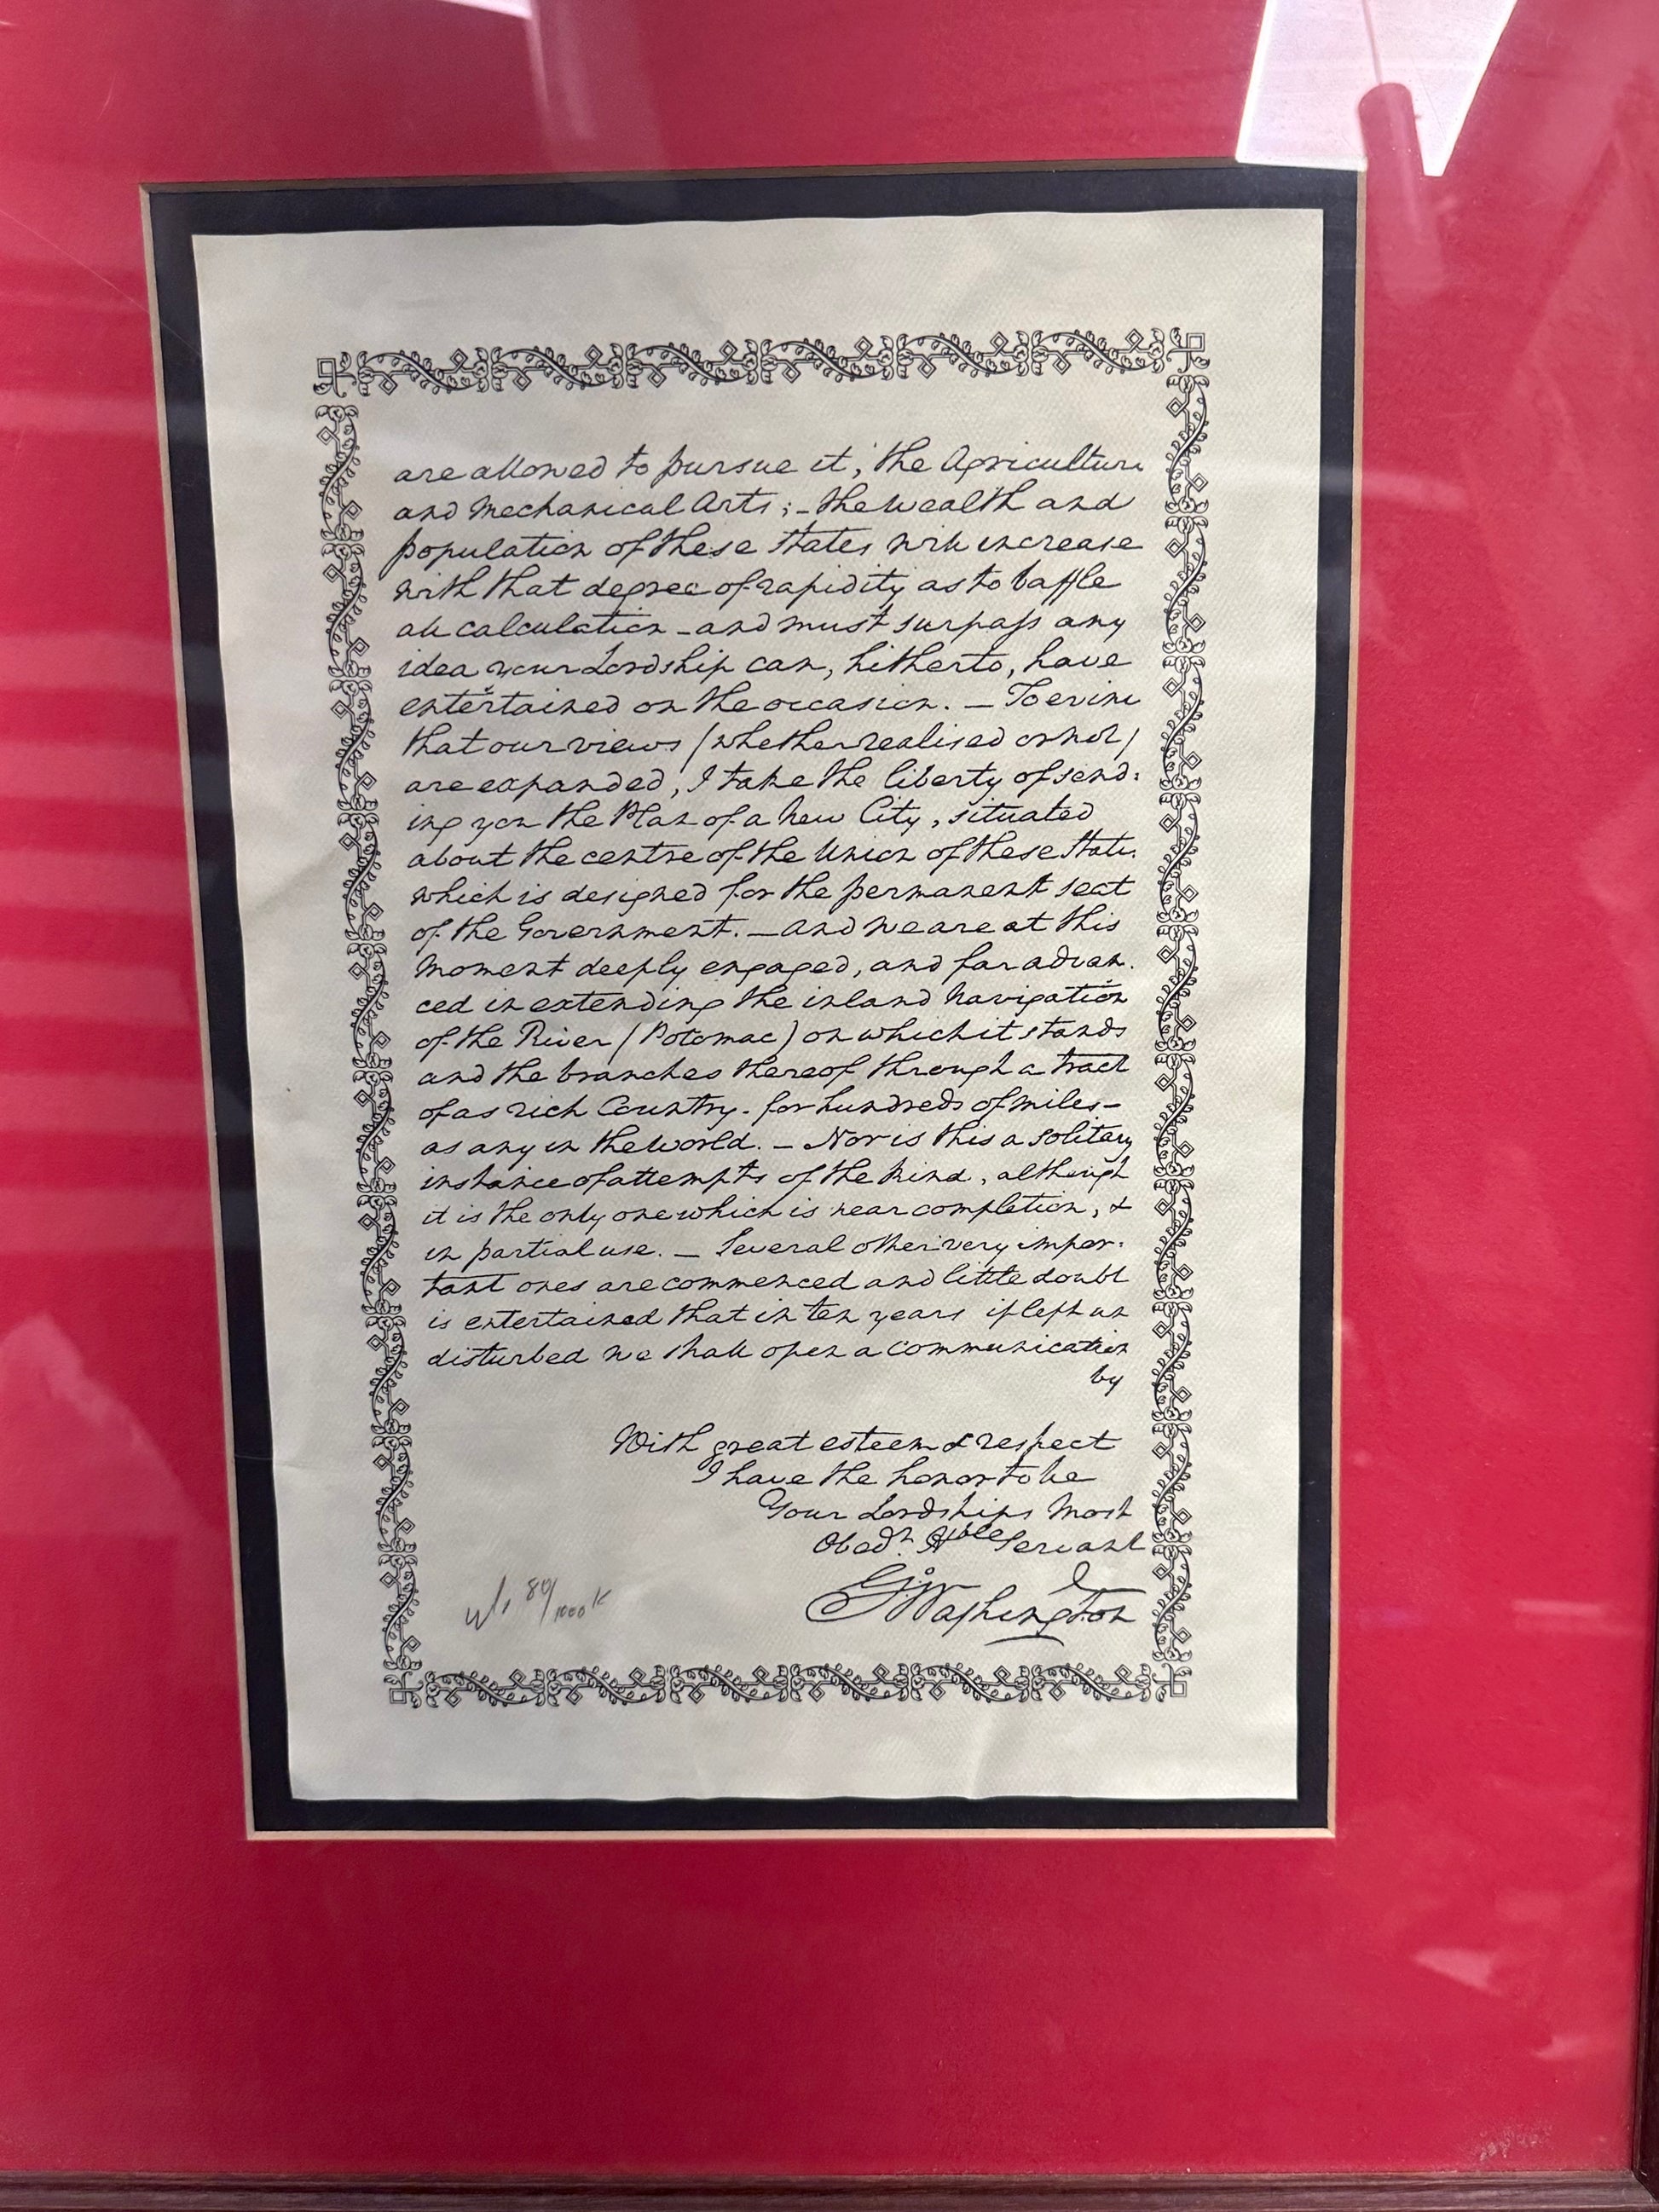 are allowed to pursue it; the Agriculture
and Mechanical Arts; - the wealth and
population of these States will increase
with that degree of rapidity as to baffle
all calculation - and must surpass any
idea your Lordship can, hitherto, have
entertained on the occasion. - To evince
that our views (whether realised or not)
are expanded, I take the liberty of send:
ing you the Plan of a New City, situated
about the centre of the Union of these States
which is designed for the permanent seat
of the Government. - and we are at this
moment deeply engaged, and far advan.
ced in extending the inland navigation
of the River (Potomac) on which it stands
and the branches thereof through a tract
of as rich Country - for hundreds of miles -
as any in the world. - Nor is this a solitary
instance of attempts of the kind, although
it is the only one which is near completion, &
in partial use. - Several other very impor.
tant ones are commenced and little doubt
is entertained that in ten years if left un
disturbed we shall open a communication
by
With great esteem & respect
I have the honor to be
Your Lordships Most
Obedt Hble Servant
Go Washington
80/1000